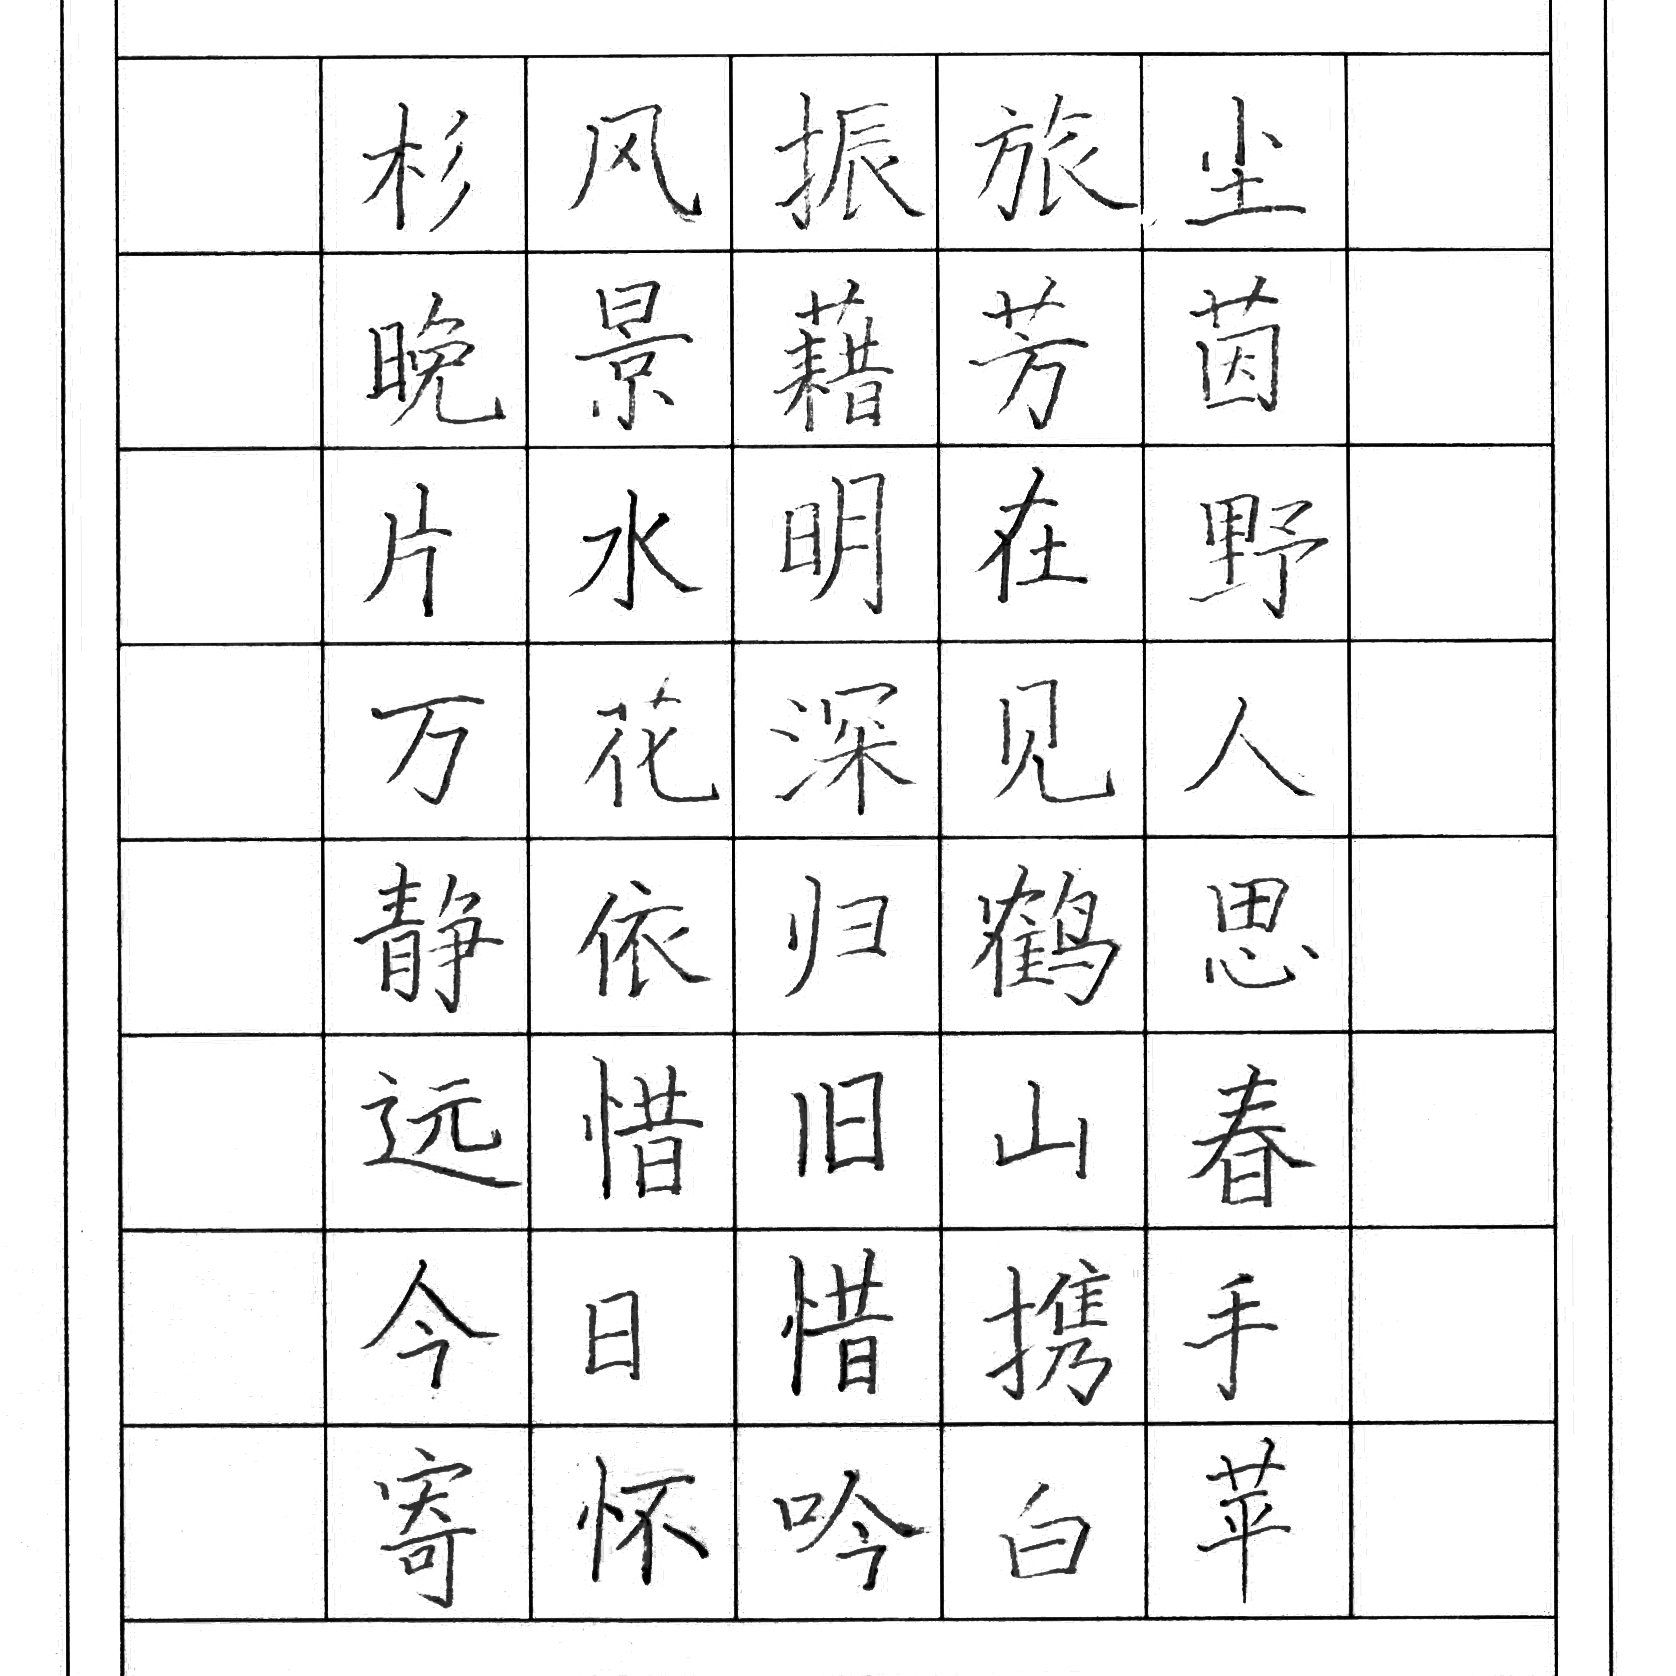 杉风振旅尘
晚景藉芳茵
片水明在野
万花深见人
静依归鹤思
远惜旧山春
今日惜携手
寄怀吟白苹